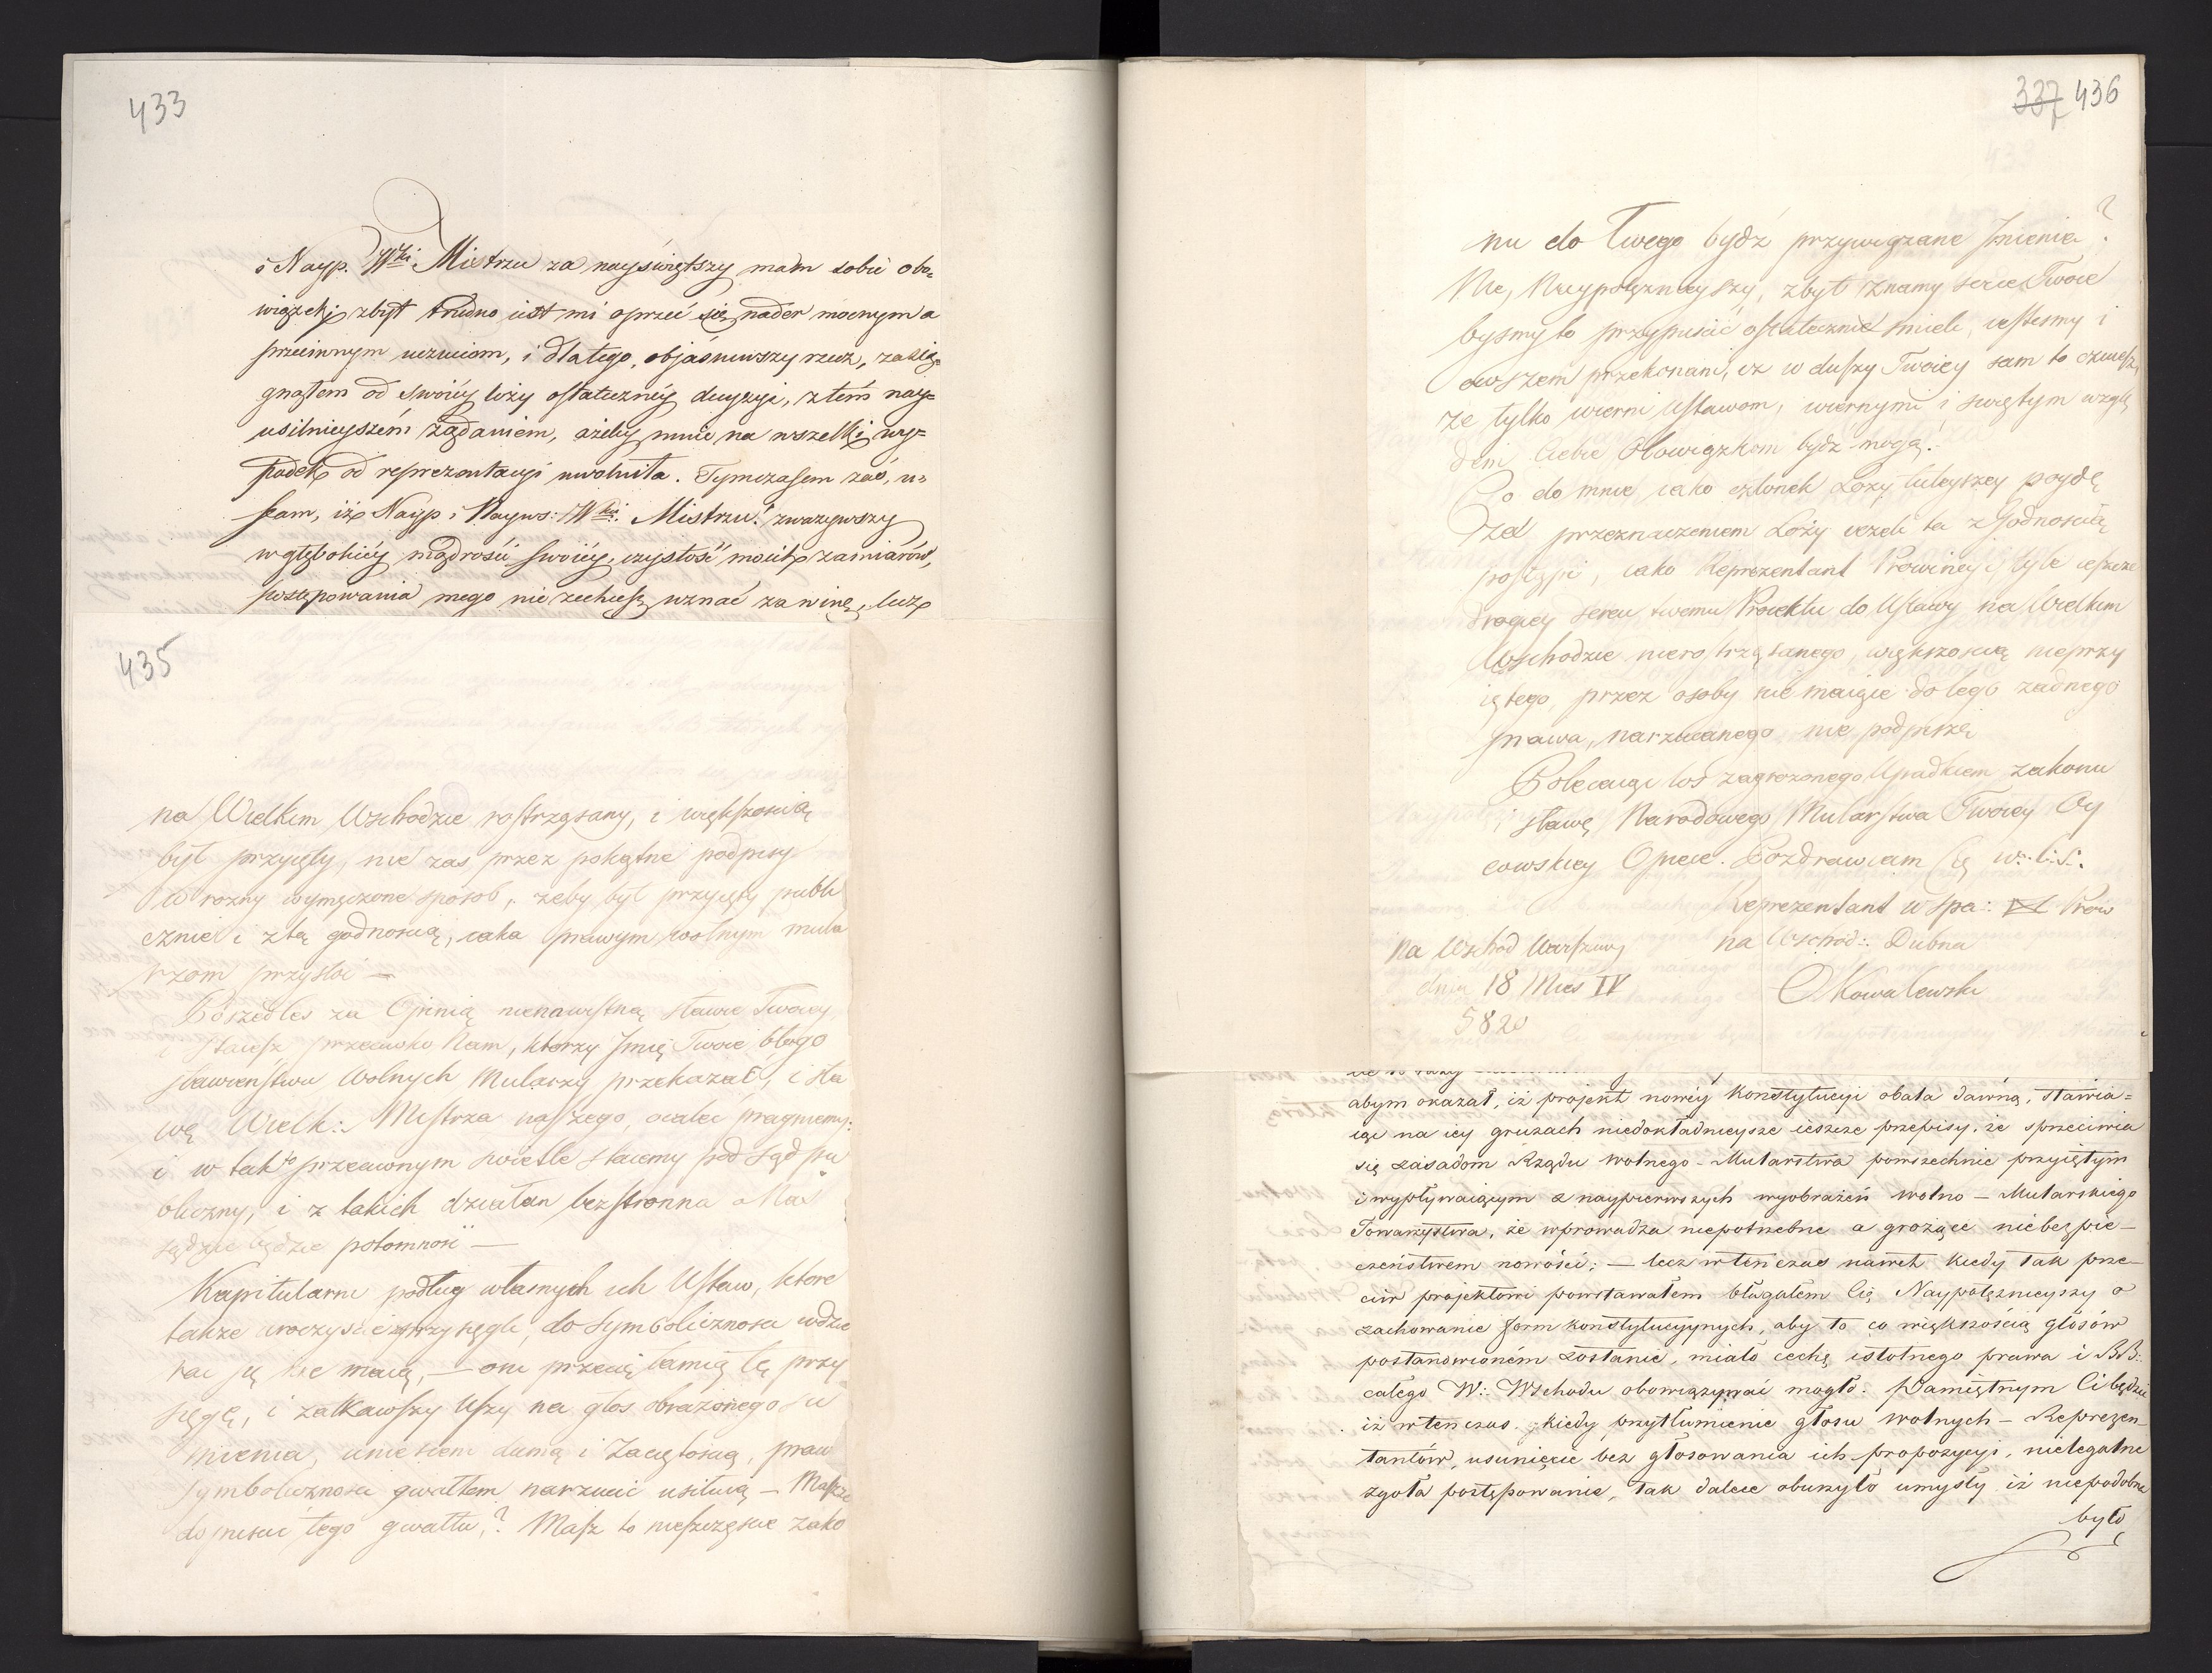 433
o Nayp. Wki Mistrzu za nayświętszy mam sobie obo=
wiązek, zbyt trudno iest mi oprzeć się nader mocnym a
przeciwnym uczuciom, i dlatego, objaśniwszy rzecz, zacią=
gnąłem od swoiéy loży ostatecznéy decyzyi, z tém nay=
usilnieyszém żądaniem, ażeby mnie na wszelki wy=
padek od reprezentacyi uwolniła. Tymczasem zaś, u=
fam, iż Nayp: Nayws: Wki: Mistrzu! zważywszy
w głębokiéy mądrości swoiéy, czystość moich zamiarów,
postępowania mego nie zechcesz uznać za winę, lecz
435
na Wielkim Wschodzie rostrząsany, i większością
był przyięty, nie zas przez pokątne podpisy
w rozny wymęczone sposob, żeby był przyięty publi
cznie i z tą godnością, iaka prawym wolnym mula
rzom przystoi —
Poszedłes za Opinią nienawistną sławie Twoiey
i staiesz przeciwko Nam, ktorzy Imię Twoie błogo
sławienstwu Wolnych Mularzy przekazać, i sła
wę Wielk: Mistrza naszego, ocalić pragniemy:
i w tak przeciwnym swietle staiemy pod sąd pu
bliczny, i z takich działan bezstronna o Nas
sądzić będzie potomność —
Kapitularni podług własnych ich Ustaw, ktore
także uroczyscie przysięgli, do Symboliczności wdzie
rac się nie maią, — oni przecię łamią tę przy
sięgę, i zatkawszy Uszy na głos obrażonego su
mienia, uniesieni dumą i Zaciętością, praw
Symboliczności gwałtem narzucić usiłuią — Maszże
dopuscic tego gwałtu,? Masz to nieszczęscie zako
337 436
nu do Twego bydź przywiązane Imienia?
Nie, Naypotężnieyszy, zbyt znamy serce Twoie
bysmy to przypuscić ostatecznie smieli, iestesmy i
owszem przekonani, iz w duszy Twoiey sam to czuiesz,
ze tylko wierni Ustawom, wiernymi i swiętym wzglę
dem Ciebie Obowiązkom bydz mogą!
Co do mnie, iako członek Loży tuteyszey poydę
za przeznaczeniem Loży iezeli ta z Godnością
postąpi, iako Reprezentant Prowincyi tyle ieszcze
drogiey sercu twemu Proiektu do Ustawy na Wielkim
Wschodzie nierostrząsanego, większością nieprzy
iętego, przez osoby nie maiące do tego zadnego
prawa, narzucanego nie podpiszę
Polecaiąc los zagrozonego Upadkiem zakonu
i sławę Narodowego Mularstwa Twoiey Oy
cowskiey Opiece. Pozdrawiam Cię w.: l.: ś.:
Reprezentant wspa: Prow
Na Wschod Warszawy na Wschod: Dubna
dnia 18 Mies IV Kowalewski
5820
abym okazał, iż projekt nowéy Konstytucyi obala dawną, stawia=
iąc na iey gruzach niedokładnieysze ieszcze przepisy. że sprzeciwia
się zasadom Rządu wolnego – Mularstwa powszechnie przyiętym
i wypływaiącym z naypierwszych wyobrażeń wolno – Mularskiego
Towarzystwa, że wprowadza niepotrzebne a grożące niebezpie–
czeństwem nowości; — lecz wtenczas nawet kiedy tak prze–
ciw projektowi powstawałem błagałem Cię Naypotężnieyszy o
zachowanie form konstytucyynych, aby to co większością głosów
postanowioném zostanie, miało cechę istotnego prawa i BB:
całego W: Wschodu obowiązywać mogło. Pamiętnym Ci będzie
iż wtenczas, kiedy przytłumienie głosu wolnych – Reprezen–
tantów, usunięcie bez głosowania ich propozycyi, nielegalne
zgoła postępowanie, tak dalece oburzyło umysły iż niepodobna
było